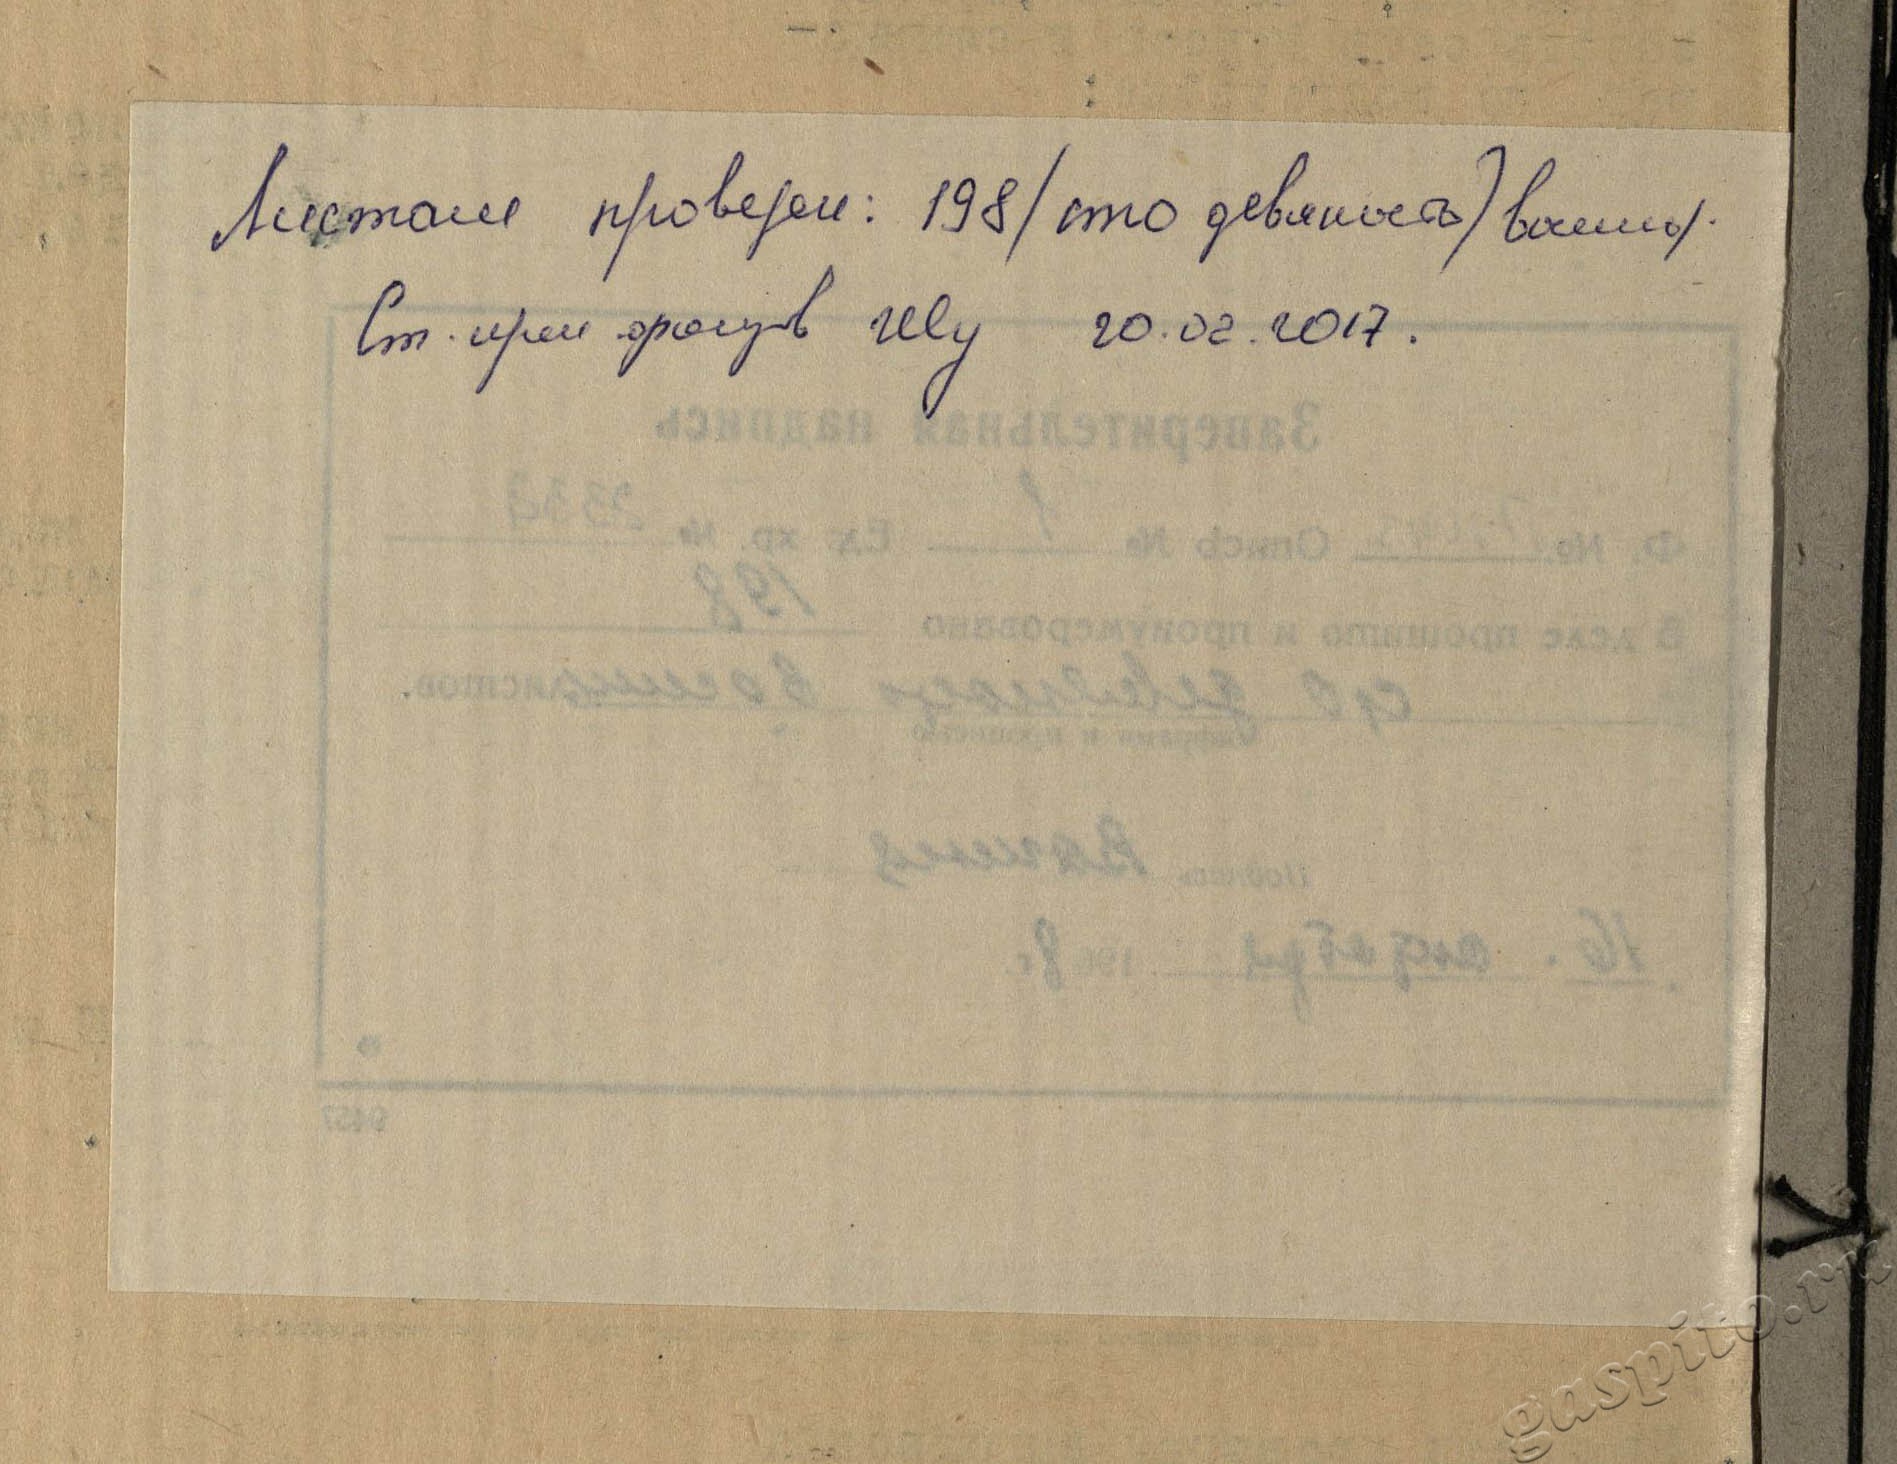 Листаж проверен: 198 (сто девяносто) восемь.
Ст. хран. фондов 20.02.2017.
Заверительная надпись
Ф. № Опись № 1 Ед. хр. № 2332
В деле прошито и пронумеровано 198
сто девяносто восемь листов.
цифрами и прописью
Подпись
16. октября 1968 г.
9457
gaspito.ru